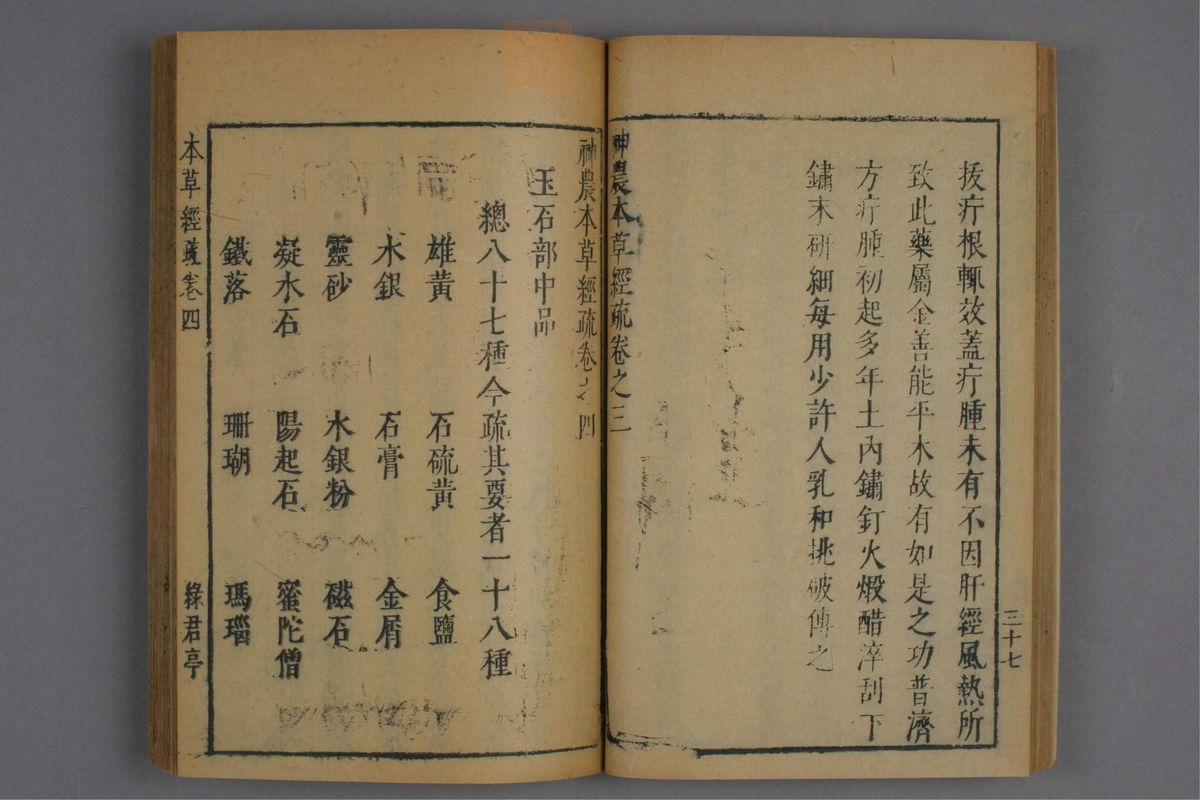 拔疔根輒效蓋疔腫未有不因肝經風熱所
致此藥屬金善能平木故有如是之功普濟
方疔腫初起多年土內鏽釘火煅醋淬刮下
鏽末研細每用少許人乳和挑破傅之
神農本草經疏卷之三
三十七
神農本草經疏卷之四
玉石部中品
總八十七種今疏其要者一十八種
雄黃 石硫黃 食鹽
水銀 石膏 金屑
靈砂 水銀粉 磁石
凝水石 陽起石 蜜陀僧
鐵落 珊瑚 瑪瑙
本草經疏卷四 綠君亭